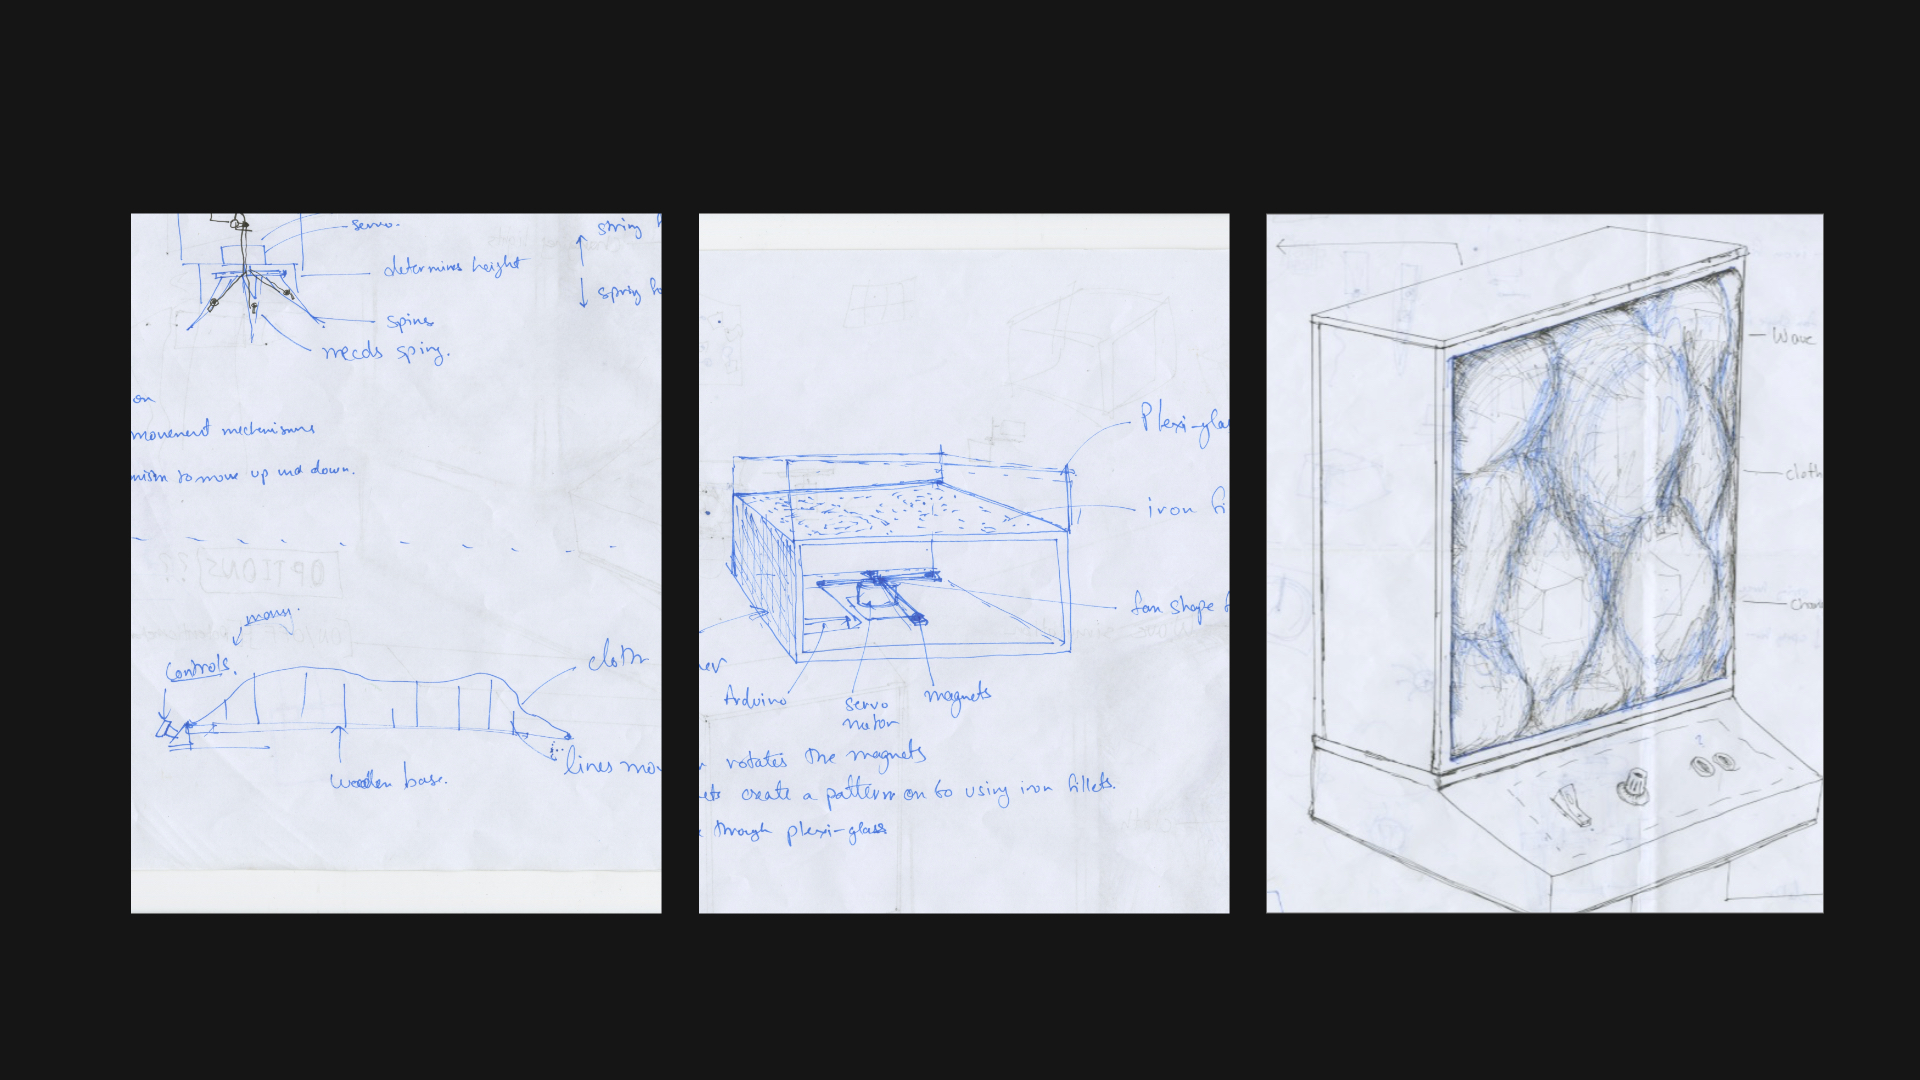 servo.
determines height
spins
needs spring.
string h
spring ho
on
movement mechanisms
nism to move up and down.
OPTIONS ??
many.
Controls.
cloth
wooden base.
lines mov
Plexi-glas
iron fi
fan shape f
er
Arduino
servo
motor
magnets
rotates the magnets
ets create a pattern on to using iron fillets.
through plexi-glass
Wave
Cloth